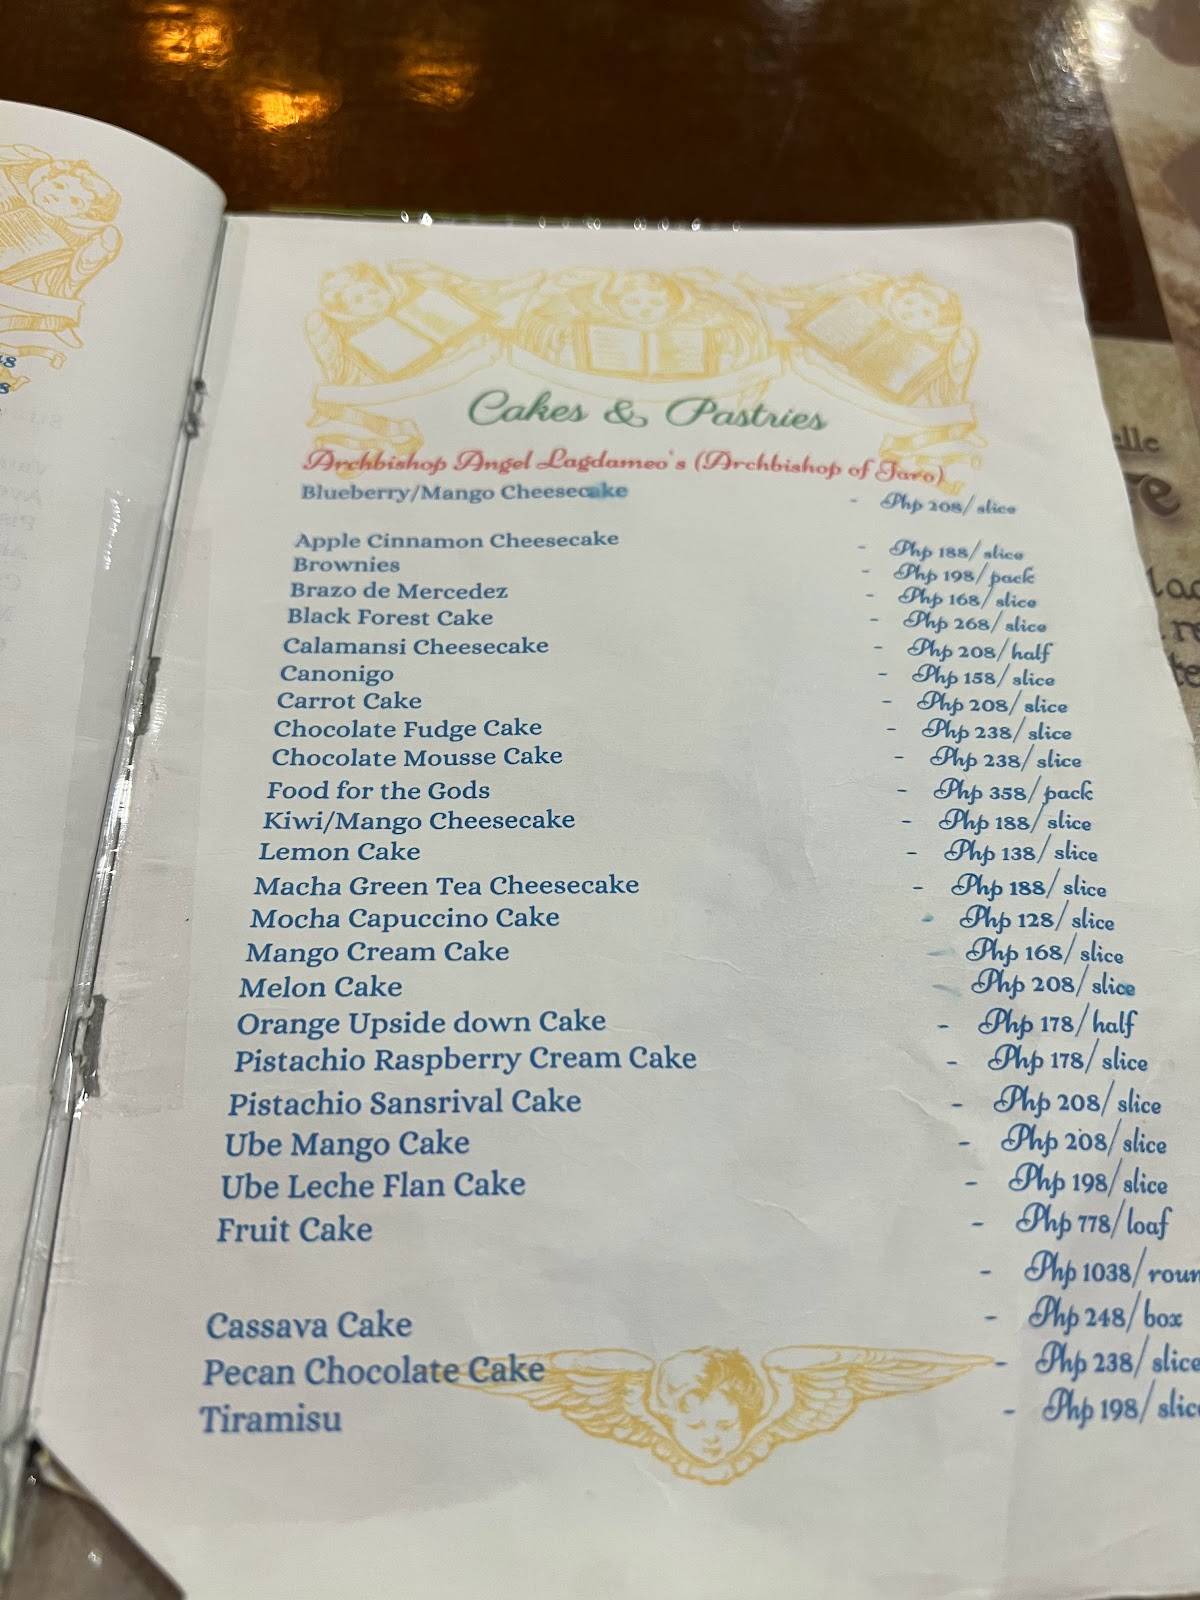 Cakes & Pastries
Archbishop Angel Lagdameo's (Archbishop of Jaro)
Blueberry/Mango Cheesecake - Php 208/slice
Apple Cinnamon Cheesecake - Php 188/slice
Brownies - Php 198/pack
Brazo de Mercedez - Php 168/slice
Black Forest Cake - Php 268/slice
Calamansi Cheesecake - Php 208/half
Canonigo - Php 158/slice
Carrot Cake - Php 208/slice
Chocolate Fudge Cake - Php 238/slice
Chocolate Mousse Cake - Php 238/slice
Food for the Gods - Php 358/pack
Kiwi/Mango Cheesecake - Php 188/slice
Lemon Cake - Php 138/slice
Macha Green Tea Cheesecake - Php 188/slice
Mocha Capuccino Cake - Php 128/slice
Mango Cream Cake - Php 168/slice
Melon Cake - Php 208/slice
Orange Upside down Cake - Php 178/half
Pistachio Raspberry Cream Cake - Php 178/slice
Pistachio Sansrival Cake - Php 208/slice
Ube Mango Cake - Php 208/slice
Ube Leche Flan Cake - Php 198/slice
Fruit Cake - Php 778/loaf
- Php 1038/roun
Cassava Cake - Php 248/box
Pecan Chocolate Cake - Php 238/slice
Tiramisu - Php 198/slic